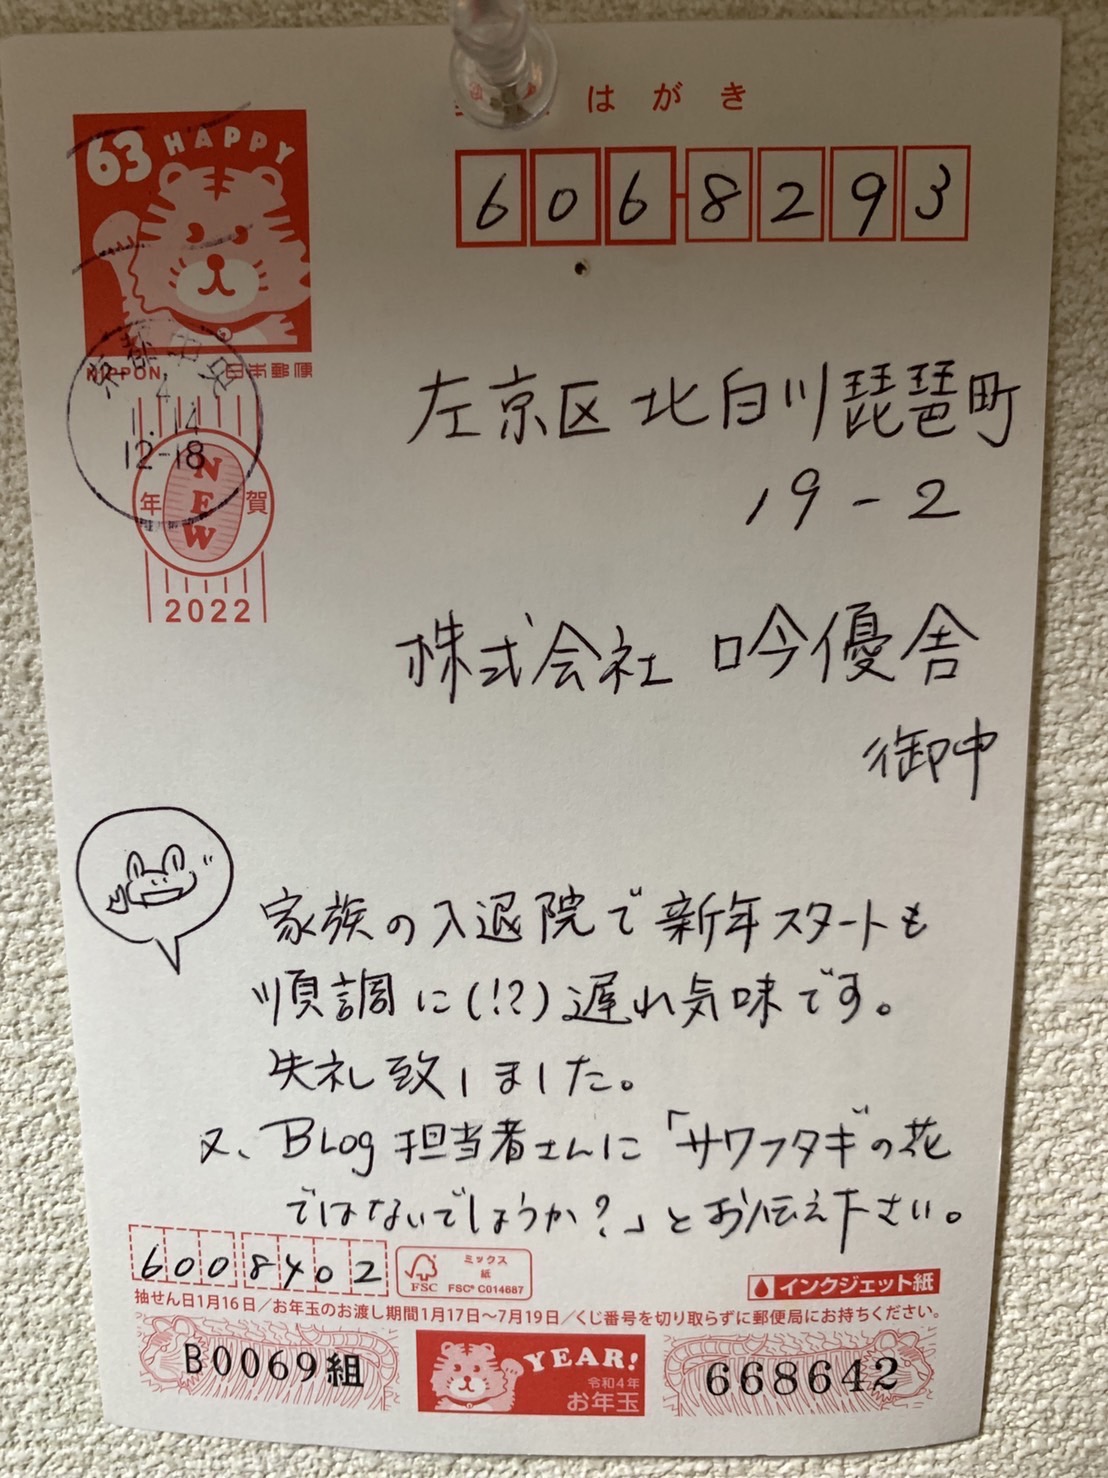 はがき
63 HAPPY
NIPPON 日本郵便
京都中央
4
1.14
12-18
年 NEW 賀
2022
606-8293
左京区北白川琵琶町
19-2
株式会社 吟優舎
御中
家族の入退院で新年スタートも
順調に(!?)遅れ気味です。
失礼致しました。
又、Blog担当者さんに「サワフタギの花
ではないでしょうか?」とお伝え下さい。
6008402
FSC ミックス 紙 FSC® C014687
インクジェット紙
抽せん日1月16日/お年玉のお渡し期間1月17日~7月19日/くじ番号を切り取らずに郵便局にお持ちください。
B0069組
YEAR!
令和4年
お年玉
668642